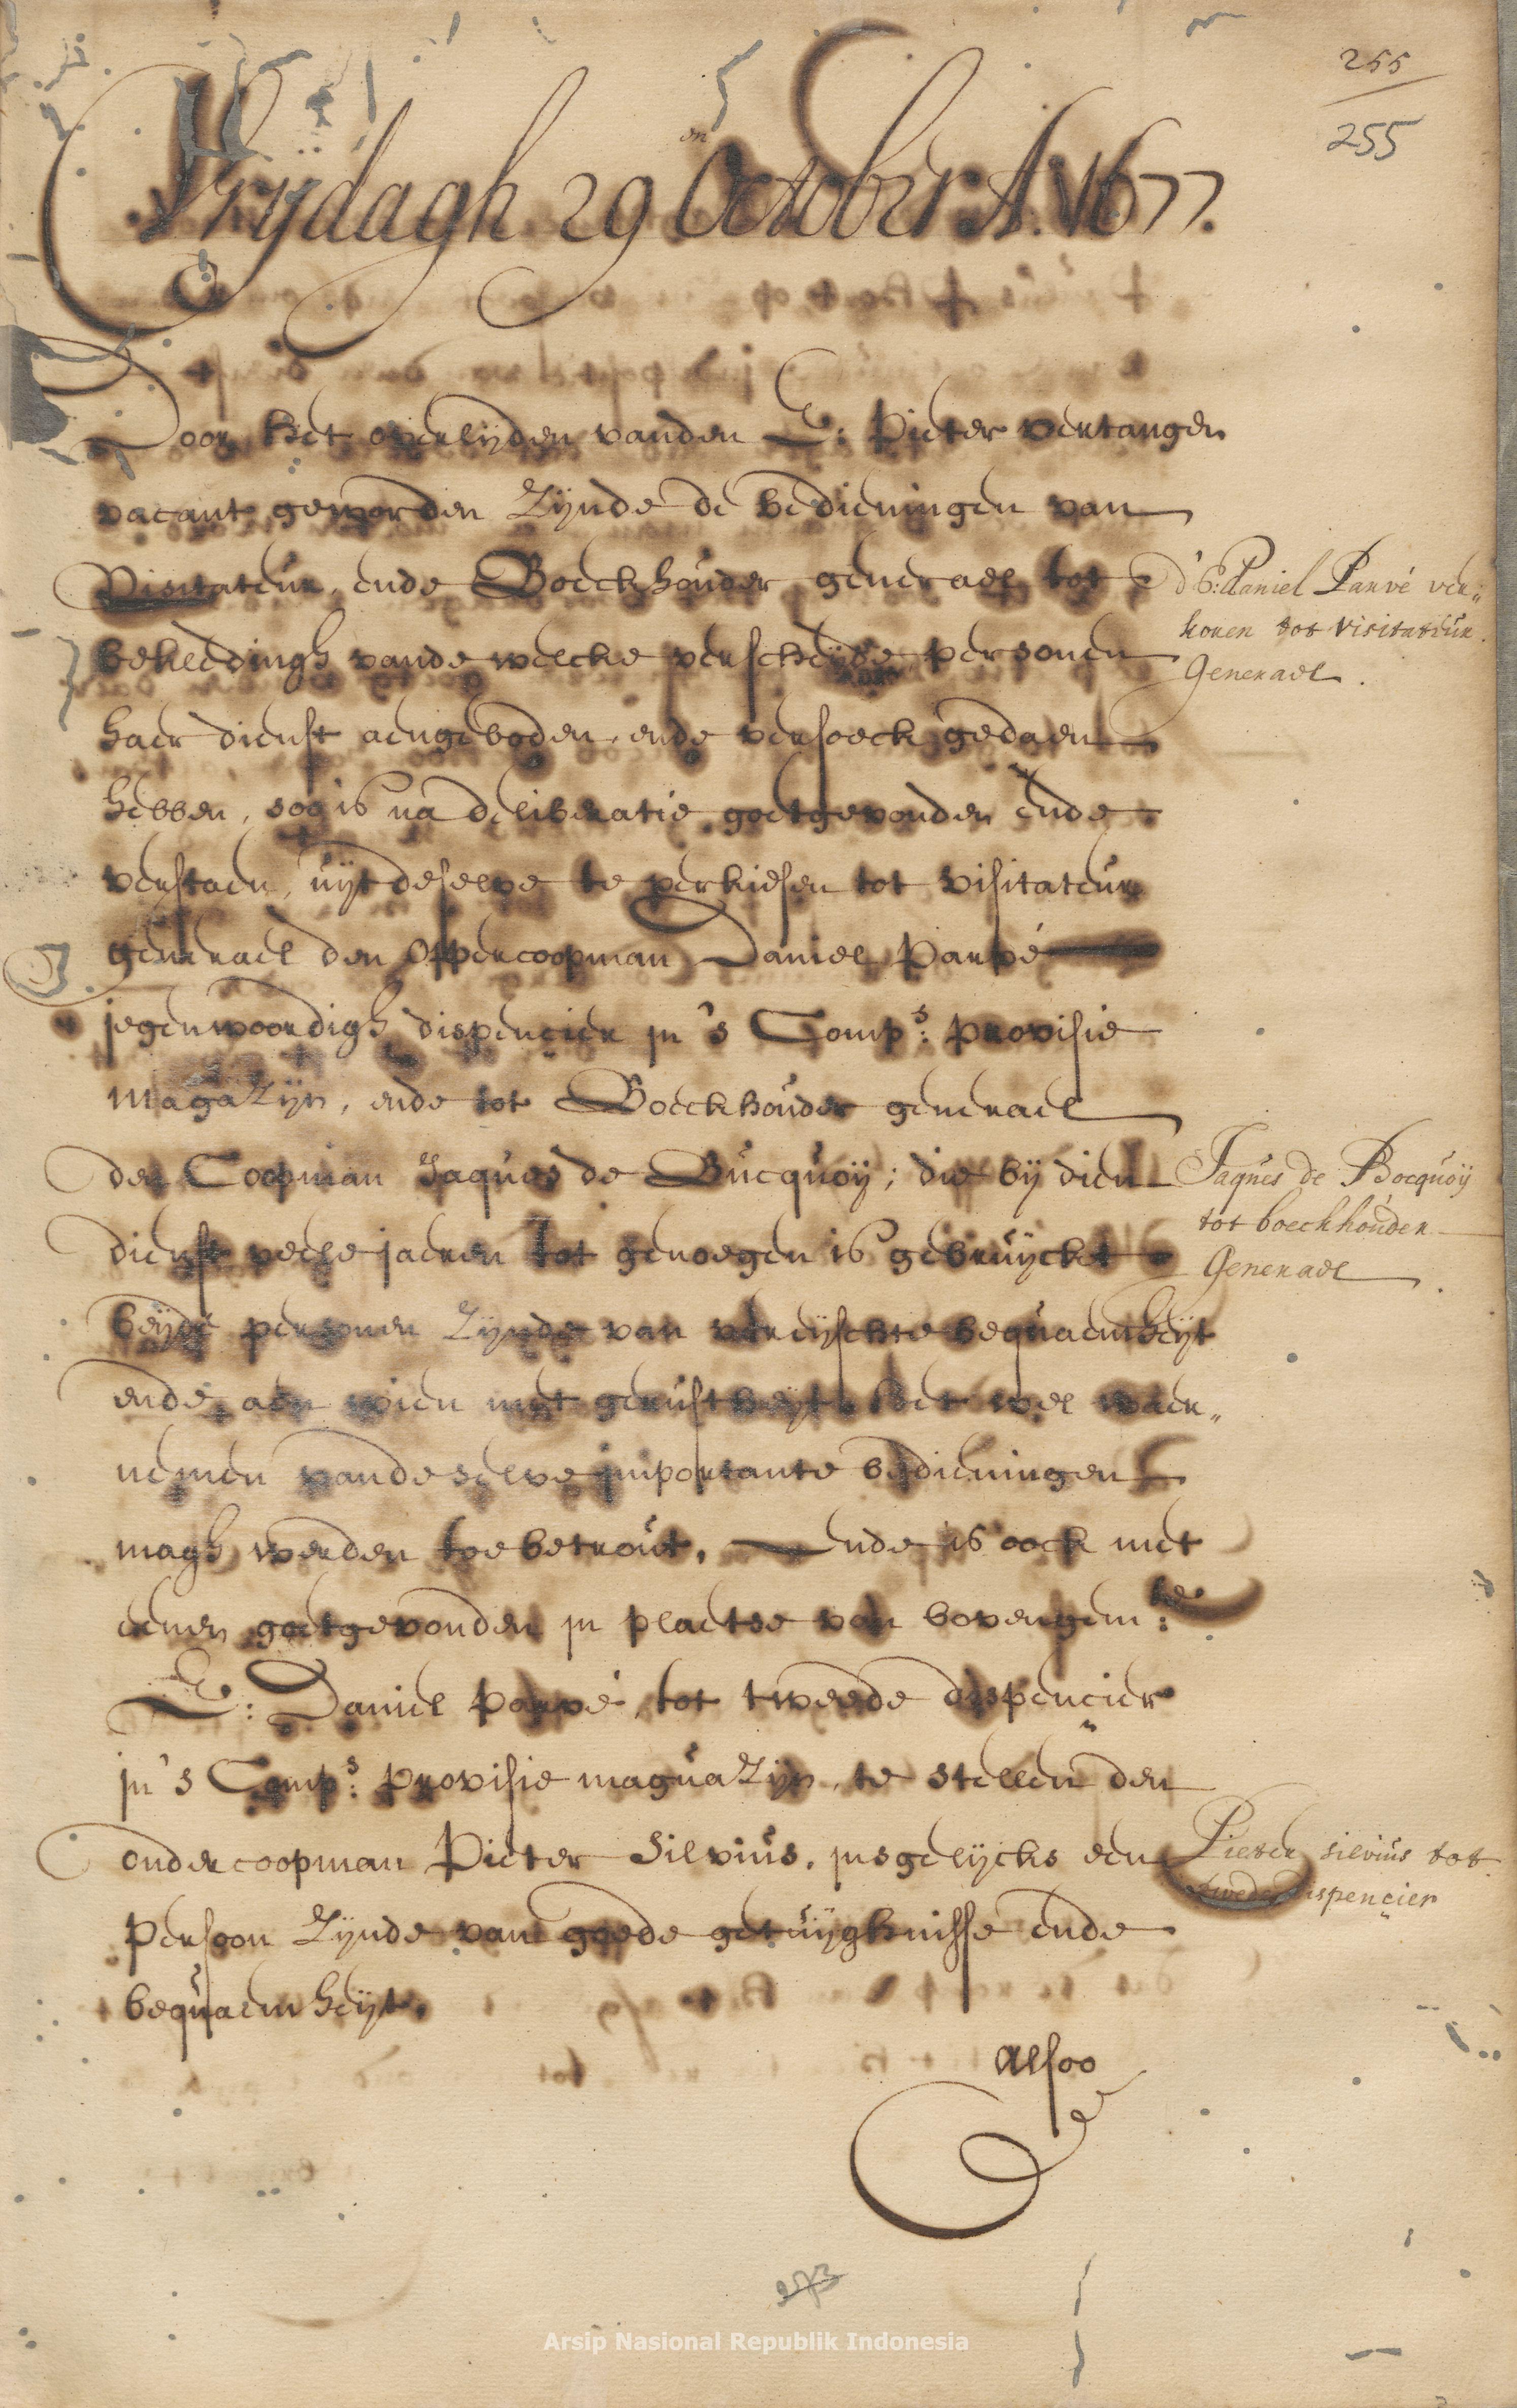 255
255
Vrydagh 29 October A.º 1677.
Door het overlyden vanden E: Pieter vertangen
vacant geworden Zijnde de bedieningen van
Visitateur, ende Boeckhouder generael tot
bekledingh vande welcke verscheyde personen
haer dienst aengeboden, ende versoeck gedaen
hebben, soo is na deliberatie goetgevonden ende
verstaen, uijt deselve te verkiesen tot visitateur
generael den Oppercoopman Daniel Parvé
jegenwoordigh dispencier in 's Comp.s: provisie
magazijn, ende tot Boeckhouder generael
den Coopman Jaques de Bucquoij; die bij dien
dienst veele jaeren tot genoegen is gebruijckt
beijde personen Zijnde van vereijschte bequaemheijt
ende aen wien met gerustheijt het wel waer„
nemen vande selve importante bedieningen
magh werden toebetrout. Ende is oock met
eenen goetgevonden in plaetse van bovengem:te
E: Daniel parvé, tot tweede dispencier
in 's Comp.s: provisie maguazijn, te stellen den
ondercoopman Pieter Silvius, insgelijcks een
persoon Zijnde van goede getuijghnisse ende
bequaemheijt.
alsoo
d'E: Daniel Parvé ver„
koren tot Visitateur
Generael.
Jaques de Bocquoij
tot boeckhouder
Generael.
Pieter Silvius tot
tweede dispencier
Arsip Nasional Republik Indonesia